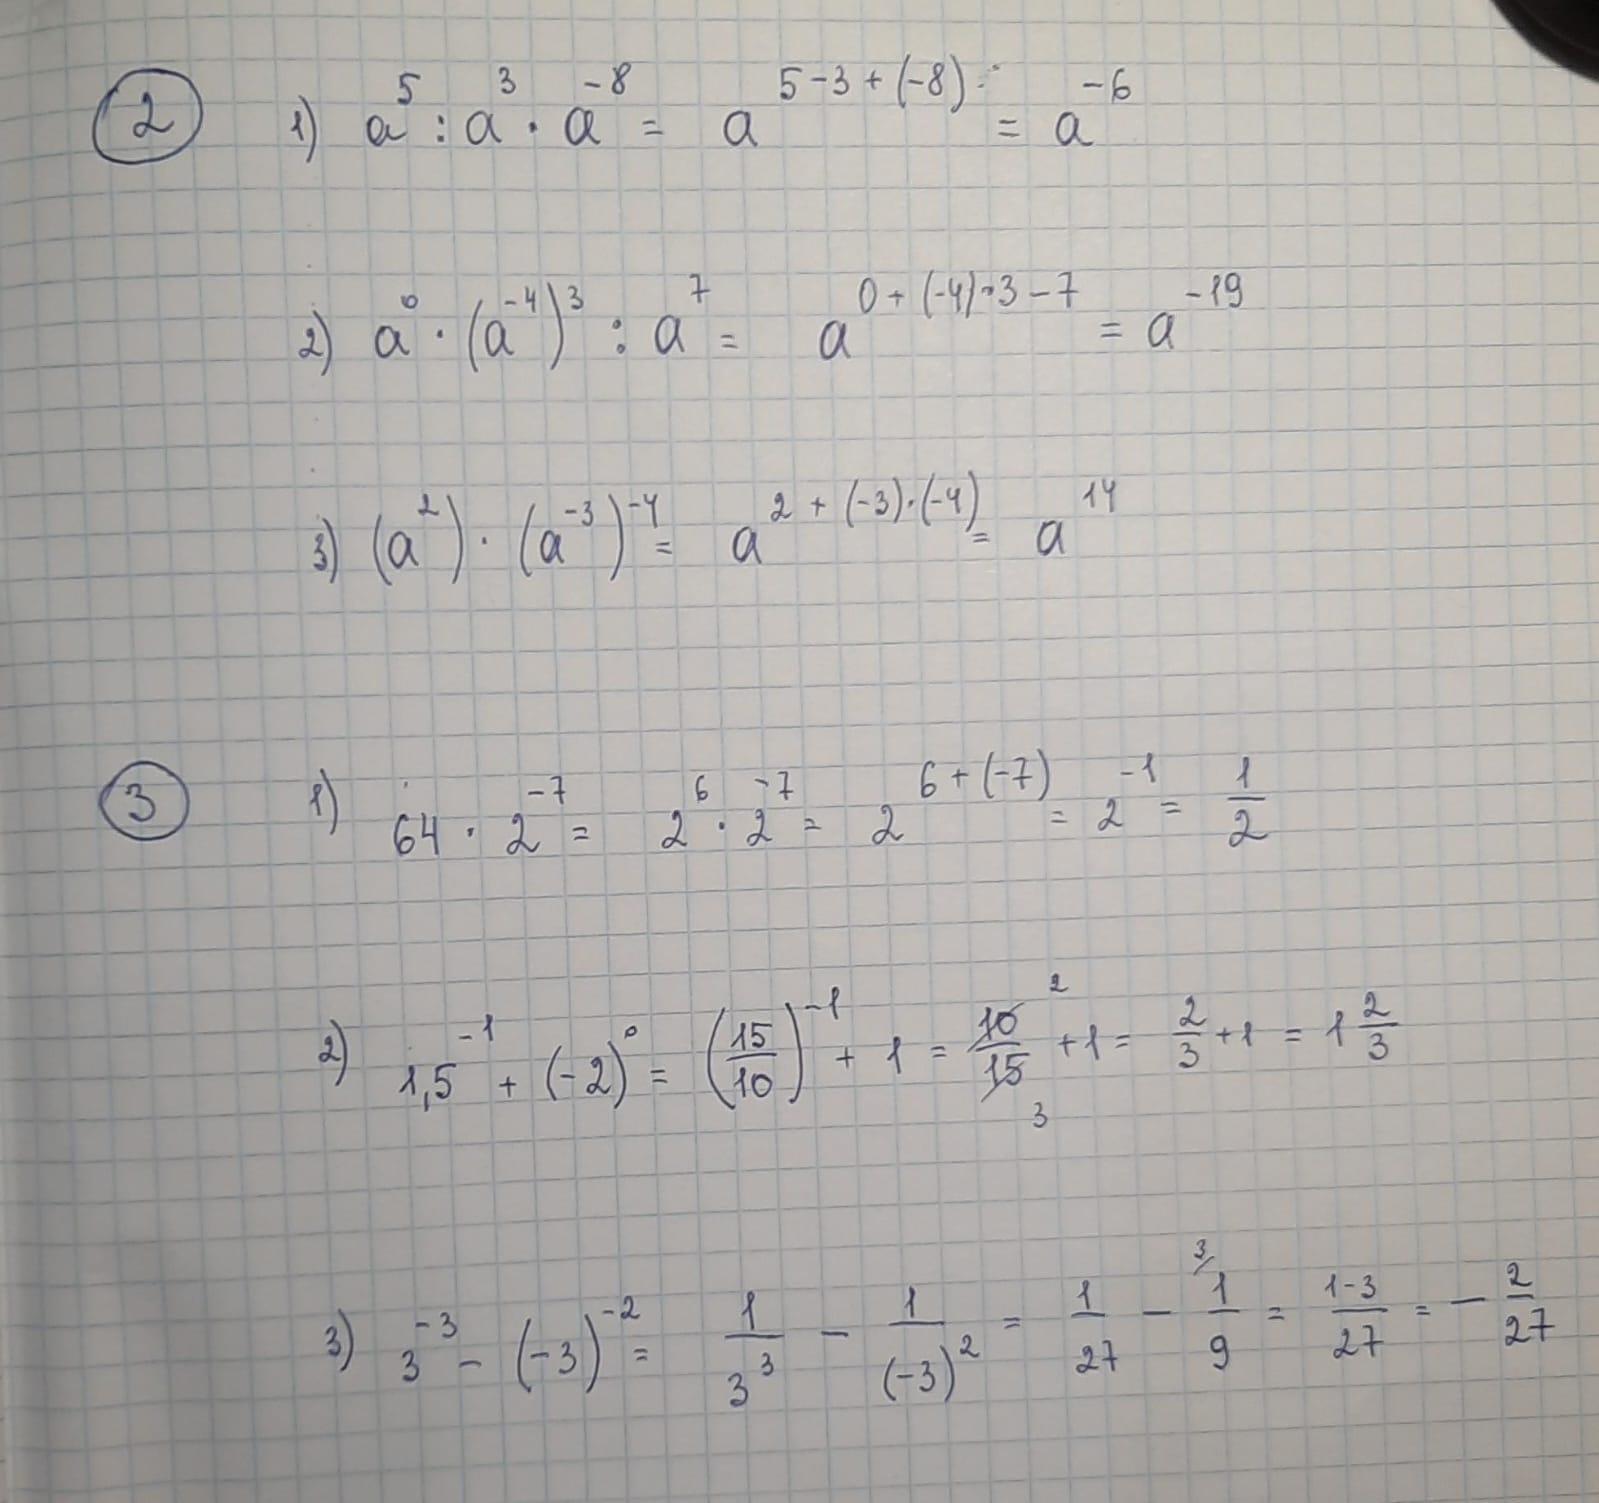 2 1) a⁵ : a³ · a⁻⁸ = a⁵⁻³⁺⁽⁻⁸⁾ = a⁻⁶
2) a⁰ · (a⁻⁴)³ : a⁷ = a^(0+(-4)·3-7) = a⁻¹⁹
3) (a²) · (a⁻³)⁻⁴ = a^(2+(-3)·(-4)) = a¹⁴
3 1) 64 · 2⁻⁷ = 2⁶ · 2⁻⁷ = 2⁶⁺⁽⁻⁷⁾ = 2⁻¹ = 1/2
2) 1,5⁻¹ + (-2)⁰ = (15/10)⁻¹ + 1 = 10/15 2 3 + 1 = 2/3 + 1 = 1 2/3
3) 3⁻³ - (-3)⁻² = 1/3³ - 1/(-3)² = 1/27 - 3/ 1/9 = 1-3/27 = - 2/27